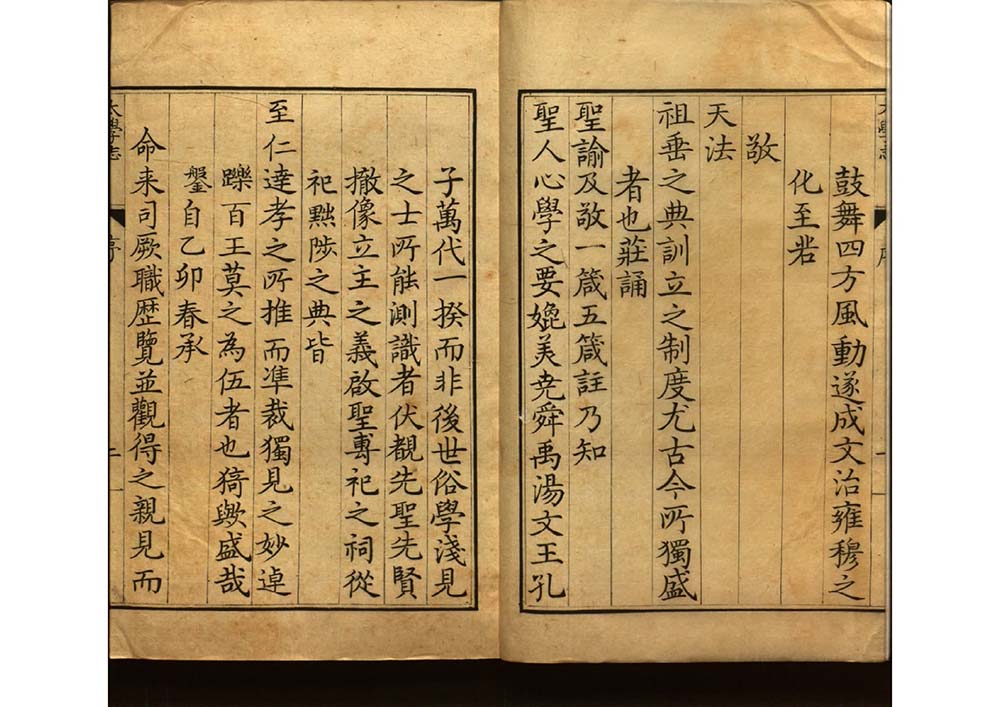 鼓舞四方風動遂成文治雍穆之
化至若
敬
天法
祖垂之典訓立之制度尤古今所獨盛
者也莊誦
聖諭及敬一箴五箴註乃知
聖人心學之要媲美尭舜禹湯文王孔
子萬代一揆而非後世俗學淺見
之士所能測識者伏覩先聖先賢
撤像立主之義啟聖專祀之祠從
祀黜陟之典皆
至仁達孝之所推而凖裁獨見之妙逴
躒百王莫之為伍者也猗歟盛哉
鎜自乙卯春承
命来司厥職歴覽並觀得之親見而